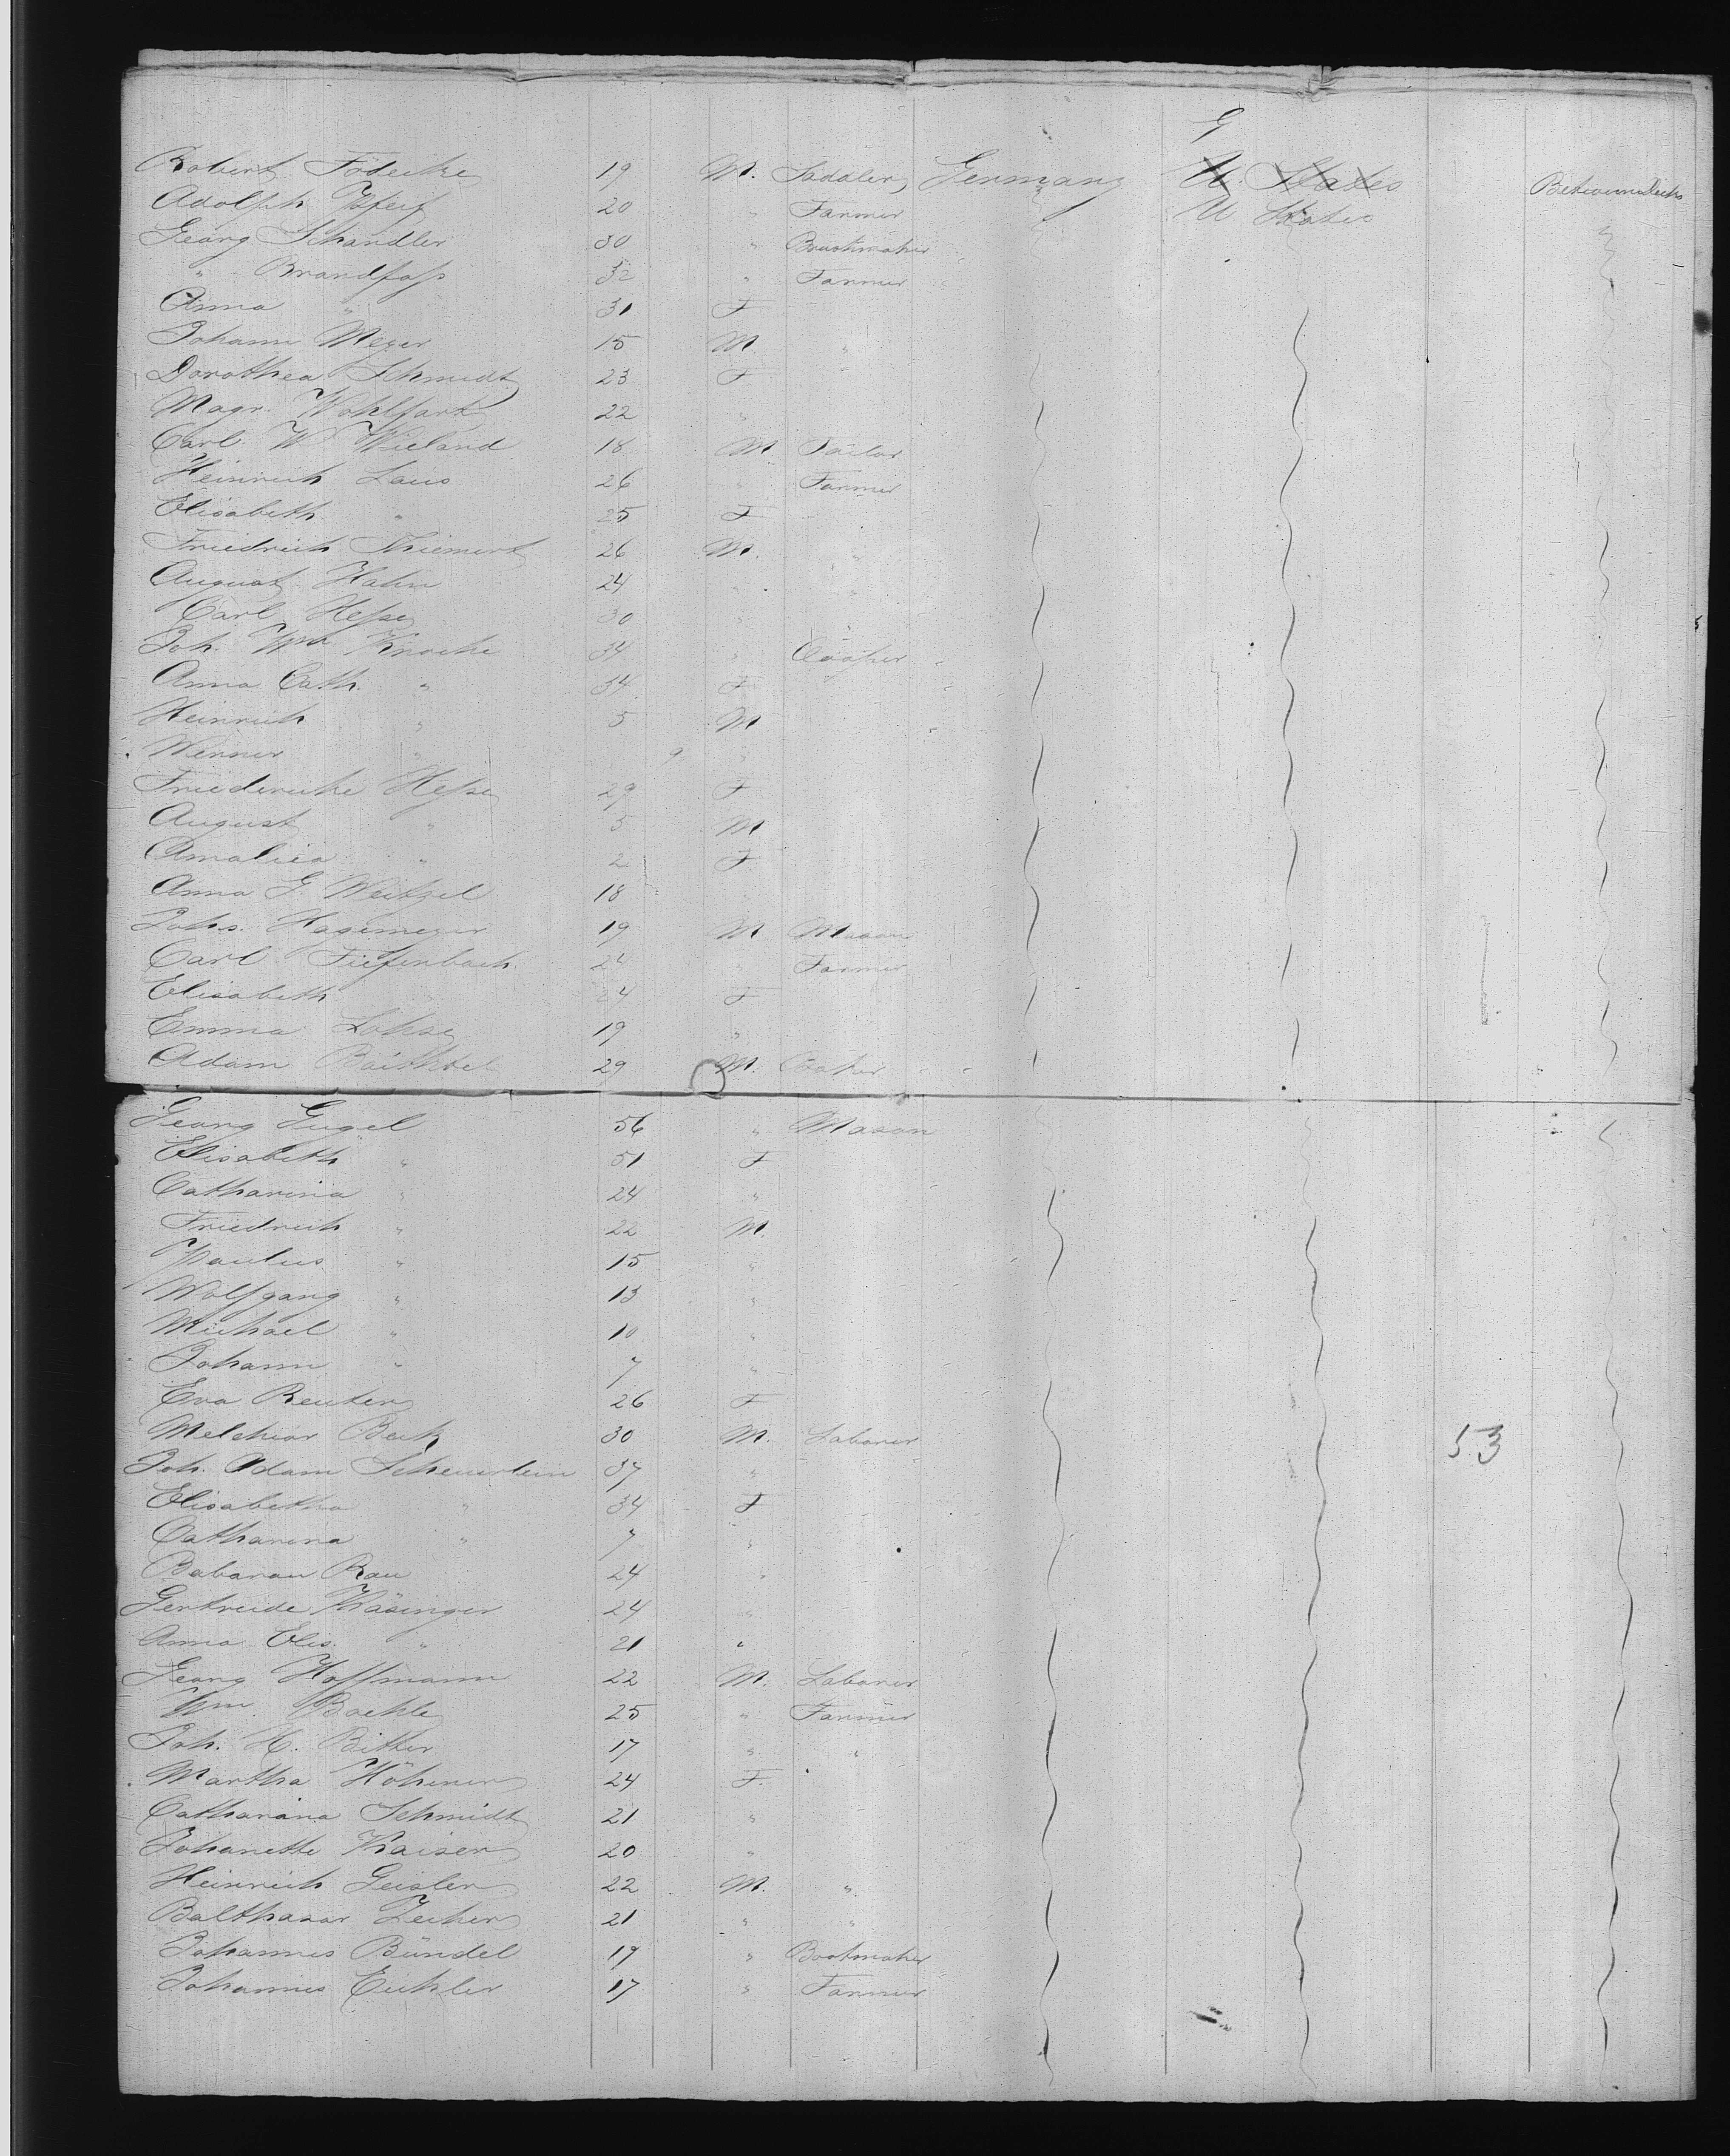 G
Robert Födecke 19 M. Saddler Germany U. States Between Decks
Adolph 20 " Farmer U States
Georg Schandler 30 "
" Brandfass 32 " Farmer
Anna " 31 F
Johann Meyer 15 M. "
Dorothea Schmidt 23 F
Magr. Wohlfart 22 "
Carl W Wieland 18 M Tailor
Heinrich Laus 26 " Farmer
Elisabeth " 25 F
Friedrich Thiemert 26 M. "
August Hahn 24 " "
Carl Hesse 30 " "
Joh. Wm Knoche 34 " Cooper
Anna Cath. " 34 F
Heinrich " 5 M
Werner " 9 "
Friedericke Hesse 29 F
August " 5 M
Amalia " 2 F
Anna G. Weitzel 18
Johs. Hagemeyer 19 M Mason
Carl Tiefenbach 24 " Farmer
Elisabeth " 24 F
Emma Lohse 19 "
Adam 29 M.
Georg Gugel 56 " Mason
Elisabeth " 51 F
Catharina " 24 "
Friedrich " 22 M.
Paulus " 15 "
Wolfgang " 13 "
Michael " 10 "
Johann " 7 "
Eva Reuter 26 F
Melchior Beck 30 M. Laborer 53
Joh. Adam Scheuerlein 37 "
Elisabetha " 34 F
Catharina " 7 "
Babarau Rau 24 "
Gertreide Käsinger 24 "
Anna Elis. " 21 "
Georg Hoffmann 22 M. Laborer
Wm. Boehle 25 " Farmer
Joh. H. Bitter 17 " "
Martha Höhener 24 F.
Catharina Schmidt 21 "
Johanette Kaiser 20 "
Heinrich Geisler 22 M. "
Balthasar Zecher 21 " "
Johannes Bündel 19 " Bootmaker
Johannes Eichler 17 " Farmer